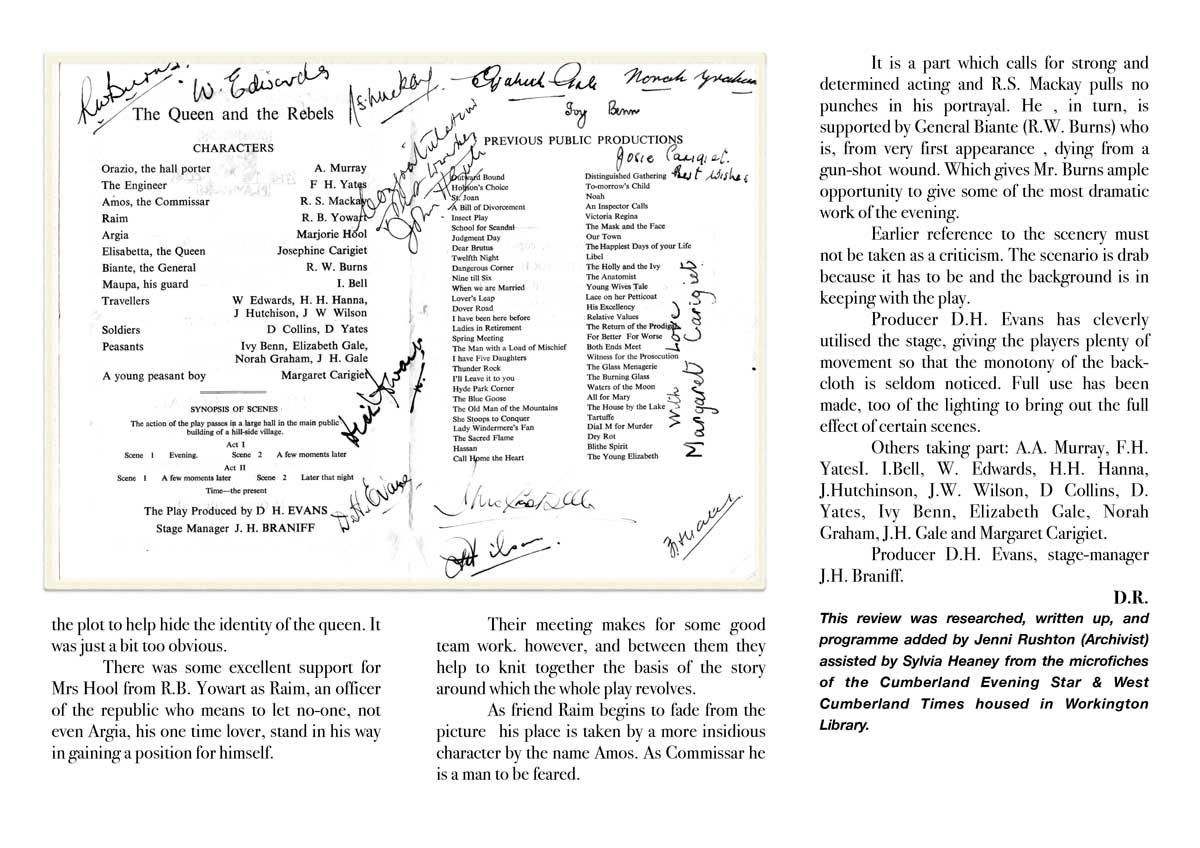 R.W. Burns.
W. Edwards
R S Mackay.
Elizabeth Gale
Norah Graham
Ivy Benn
The Queen and the Rebels
CHARACTERS
Orazio, the hall porter A. Murray
The Engineer F H. Yates
Amos, the Commissar R. S. Mackay
Raim R. B. Yowart
Argia Marjorie Hool
Elisabetta, the Queen Josephine Carigiet
Biante, the General R. W. Burns
Maupa, his guard I. Bell
Travellers W Edwards, H. H. Hanna,
J Hutchison, J W Wilson
Soldiers D Collins, D Yates
Peasants Ivy Benn, Elizabeth Gale,
Norah Graham, J H. Gale
A young peasant boy Margaret Carigiet
SYNOPSIS OF SCENES
The action of the play passes in a large hall in the main public
building of a hill-side village.
Act I
Scene 1 Evening. Scene 2 A few moments later
Act II
Scene 1 A few moments later Scene 2 Later that night
Time—the present
The Play Produced by D H. EVANS
Stage Manager J. H. BRANIFF
D.H. Evans
Congratulations
John
PREVIOUS PUBLIC PRODUCTIONS
Josie Carigiet.
Best Wishes
Outward Bound
Hobson's Choice
St. Joan
A Bill of Divorcement
Insect Play
School for Scandal
Judgment Day
Dear Brutus
Twelfth Night
Dangerous Corner
Nine till Six
When we are Married
Lover's Leap
Dover Road
I have been here before
Ladies in Retirement
Spring Meeting
The Man with a Load of Mischief
I have Five Daughters
Thunder Rock
I'll Leave it to you
Hyde Park Corner
The Blue Goose
The Old Man of the Mountains
She Stoops to Conquer
Lady Windermere's Fan
The Sacred Flame
Hassan
Call Home the Heart
Distinguished Gathering
To-morrow's Child
Noah
An Inspector Calls
Victoria Regina
The Mask and the Face
Our Town
The Happiest Days of your Life
Libel
The Holly and the Ivy
The Anatomist
Young Wives Tale
Lace on her Petticoat
His Excellency
Relative Values
The Return of the Prodigal
For Better For Worse
Both Ends Meet
Witness for the Prosecution
The Glass Menagerie
The Burning Glass
Waters of the Moon
All for Mary
The House by the Lake
Tartuffe
Dial M for Murder
Dry Rot
Blithe Spirit
The Young Elizabeth
With Love
Margaret Carigiet
the plot to help hide the identity of the queen. It
was just a bit too obvious.
There was some excellent support for
Mrs Hool from R.B. Yowart as Raim, an officer
of the republic who means to let no-one, not
even Argia, his one time lover, stand in his way
in gaining a position for himself.
Their meeting makes for some good
team work. however, and between them they
help to knit together the basis of the story
around which the whole play revolves.
As friend Raim begins to fade from the
picture his place is taken by a more insidious
character by the name Amos. As Commissar he
is a man to be feared.
It is a part which calls for strong and
determined acting and R.S. Mackay pulls no
punches in his portrayal. He , in turn, is
supported by General Biante (R.W. Burns) who
is, from very first appearance , dying from a
gun-shot wound. Which gives Mr. Burns ample
opportunity to give some of the most dramatic
work of the evening.
Earlier reference to the scenery must
not be taken as a criticism. The scenario is drab
because it has to be and the background is in
keeping with the play.
Producer D.H. Evans has cleverly
utilised the stage, giving the players plenty of
movement so that the monotony of the back-
cloth is seldom noticed. Full use has been
made, too of the lighting to bring out the full
effect of certain scenes.
Others taking part: A.A. Murray, F.H.
YatesI. I.Bell, W. Edwards, H.H. Hanna,
J.Hutchinson, J.W. Wilson, D Collins, D.
Yates, Ivy Benn, Elizabeth Gale, Norah
Graham, J.H. Gale and Margaret Carigiet.
Producer D.H. Evans, stage-manager
J.H. Braniff.
D.R.
This review was researched, written up, and
programme added by Jenni Rushton (Archivist)
assisted by Sylvia Heaney from the microfiches
of the Cumberland Evening Star & West
Cumberland Times housed in Workington
Library.